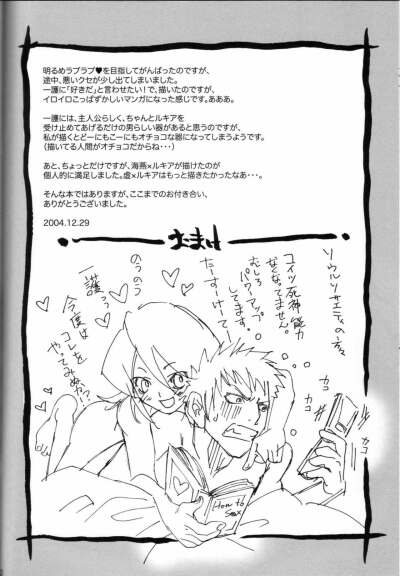 明るめラブラブ♥を目指してがんばったのですが、
途中、悪いクセが少し出てしまいました。
一護に「好きだ」と言わせたい！で、描いたのですが、
イロイロこっぱずかしいマンガになった感じです。あああ。
一護には、主人公らしく、ちゃんとルキアを
受け止めてあげるだけの男らしい器があると思うのですが、
私が描くとどーにもこーにもオチョコな器になってしまうようです。
（描いてる人間がオチョコだからね・・・）
あと、ちょっとだけですが、海燕×ルキアが描けたのが
個人的に満足しました。虚×ルキアはもっと描きたかったなあ・・・。
そんな本ではありますが、ここまでのお付き合い、
ありがとうございました。
2004.12.29
おまけ
ソウルソサエティの方々
コイツ死神能力
なくなってません。
むしろ
パワーアップ
してます。
たーすーけーてー
のうのう
一護っっ
今度は
コレを
やってみぬか？
カコ
カコ
カコ
How to
Sex